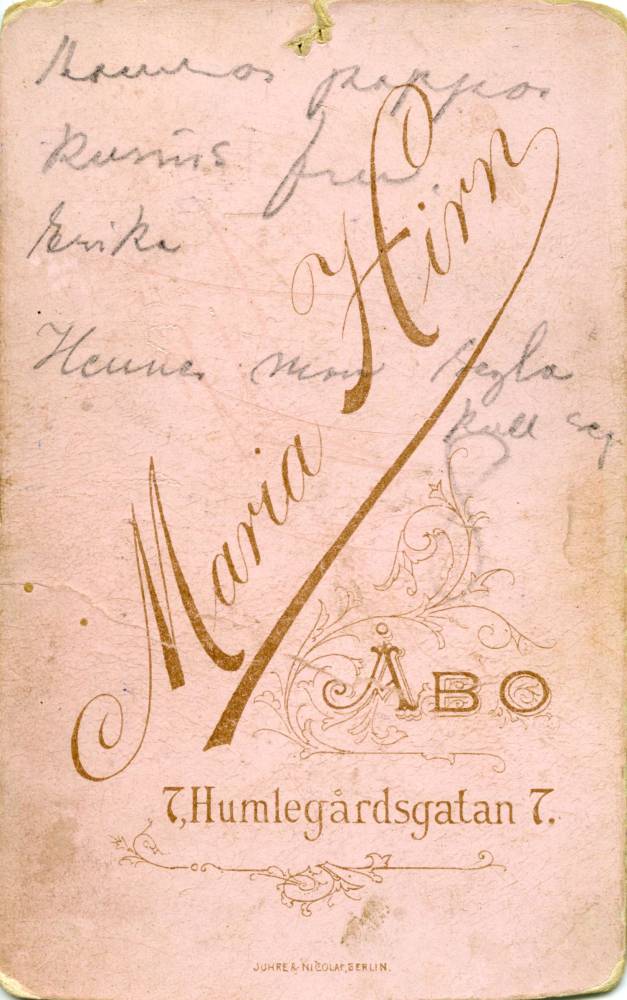 pappas
kusins fru
Erika
Hennes man segla
kull
Maria Hirn
ÅBO
7, Humlegårdsgatan 7.
JUHRE & NICOLAI, BERLIN.